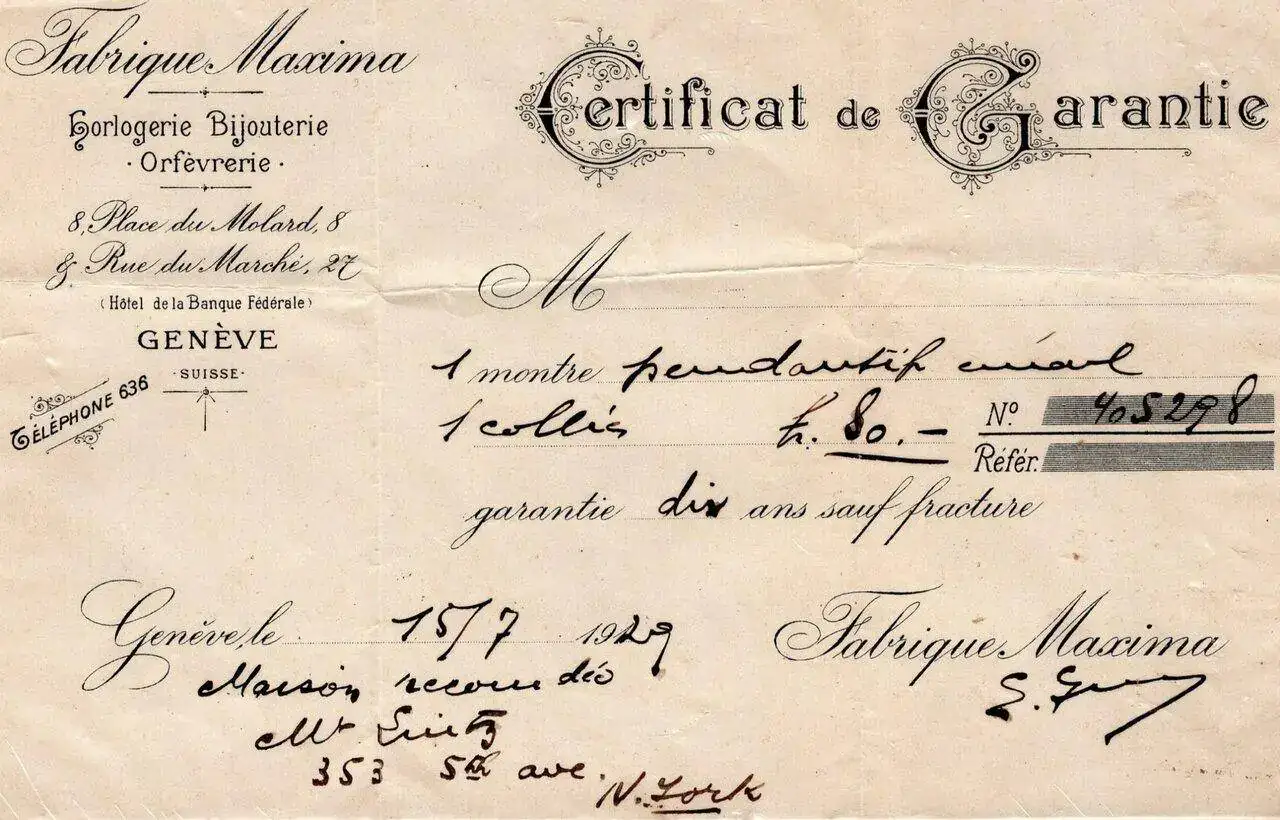 Fabrique Maxima
Horlogerie Bijouterie
· Orfèvrerie ·
8, Place du Molard, 8
& Rue du Marché, 27
(Hôtel de la Banque Fédérale)
GENÈVE
· SUISSE ·
TÉLÉPHONE 636
Certificat de Garantie
M
1 montre pendantif émail
1 collier Fr. 80.-
Nº 405298
Référ.
garantie dix ans sauf fracture
Genève, le 15/7 1929
Maison
Mr
353 5th ave. N. York
Fabrique Maxima